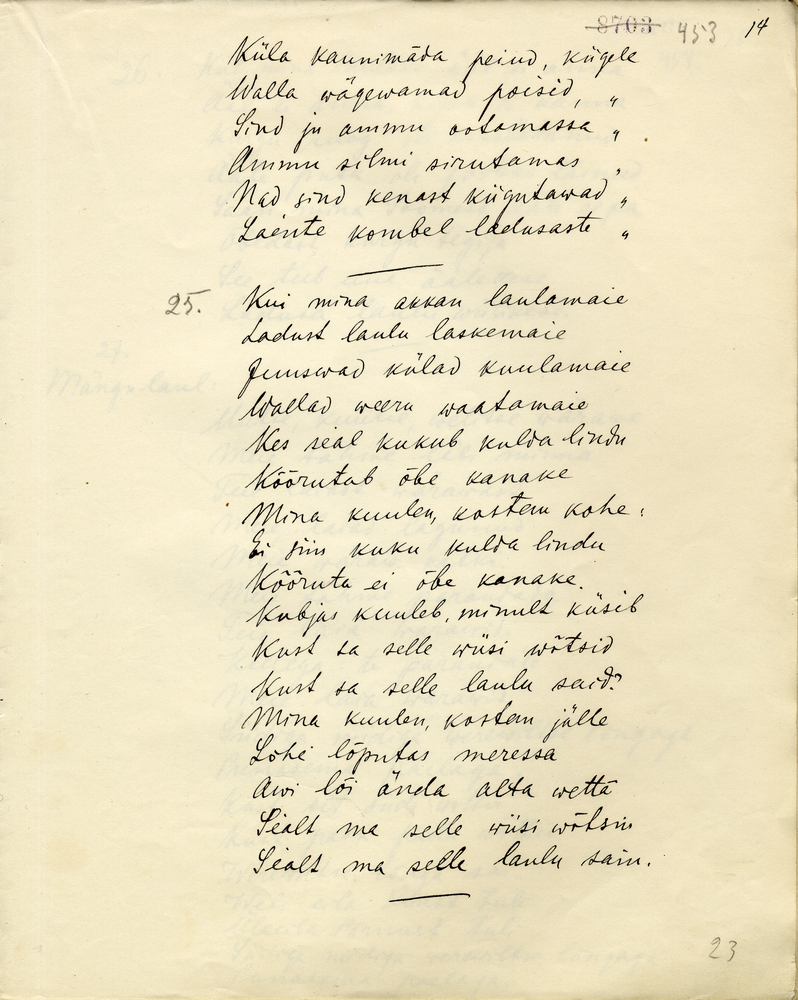 8703 453 14
Küla kaunimada peiud, kiigele
Walla wägewamad poisid, "
Sind ju ammu ootamassa "
Ammu silmi sirutamas "
Nad sind kenast kiigutawad "
Laente kombel ladusaste "
25. Kui mina akkan laulamaie
Ladust laulu laskemaie
Juuswad külad kuulamaie
Wallad weeru waatamaie
Kes seal kukub kulda lindu
Köörutab õbe kanake
Mina kuulen, kosten kohe:
Ei siin kuku kulda lindu
Kööruta ei õbe kanake.
Kubjas kuuleb, minult küsib
Kust sa selle wiisi wõtsid
Kust sa selle laulu said?
Mina kuulen, kosten jälle
Lõhe lõputas meressa
Awi lõi ända alta wetta
Sealt ma selle wiisi wõtsin
Sealt ma selle laulu sain.
23